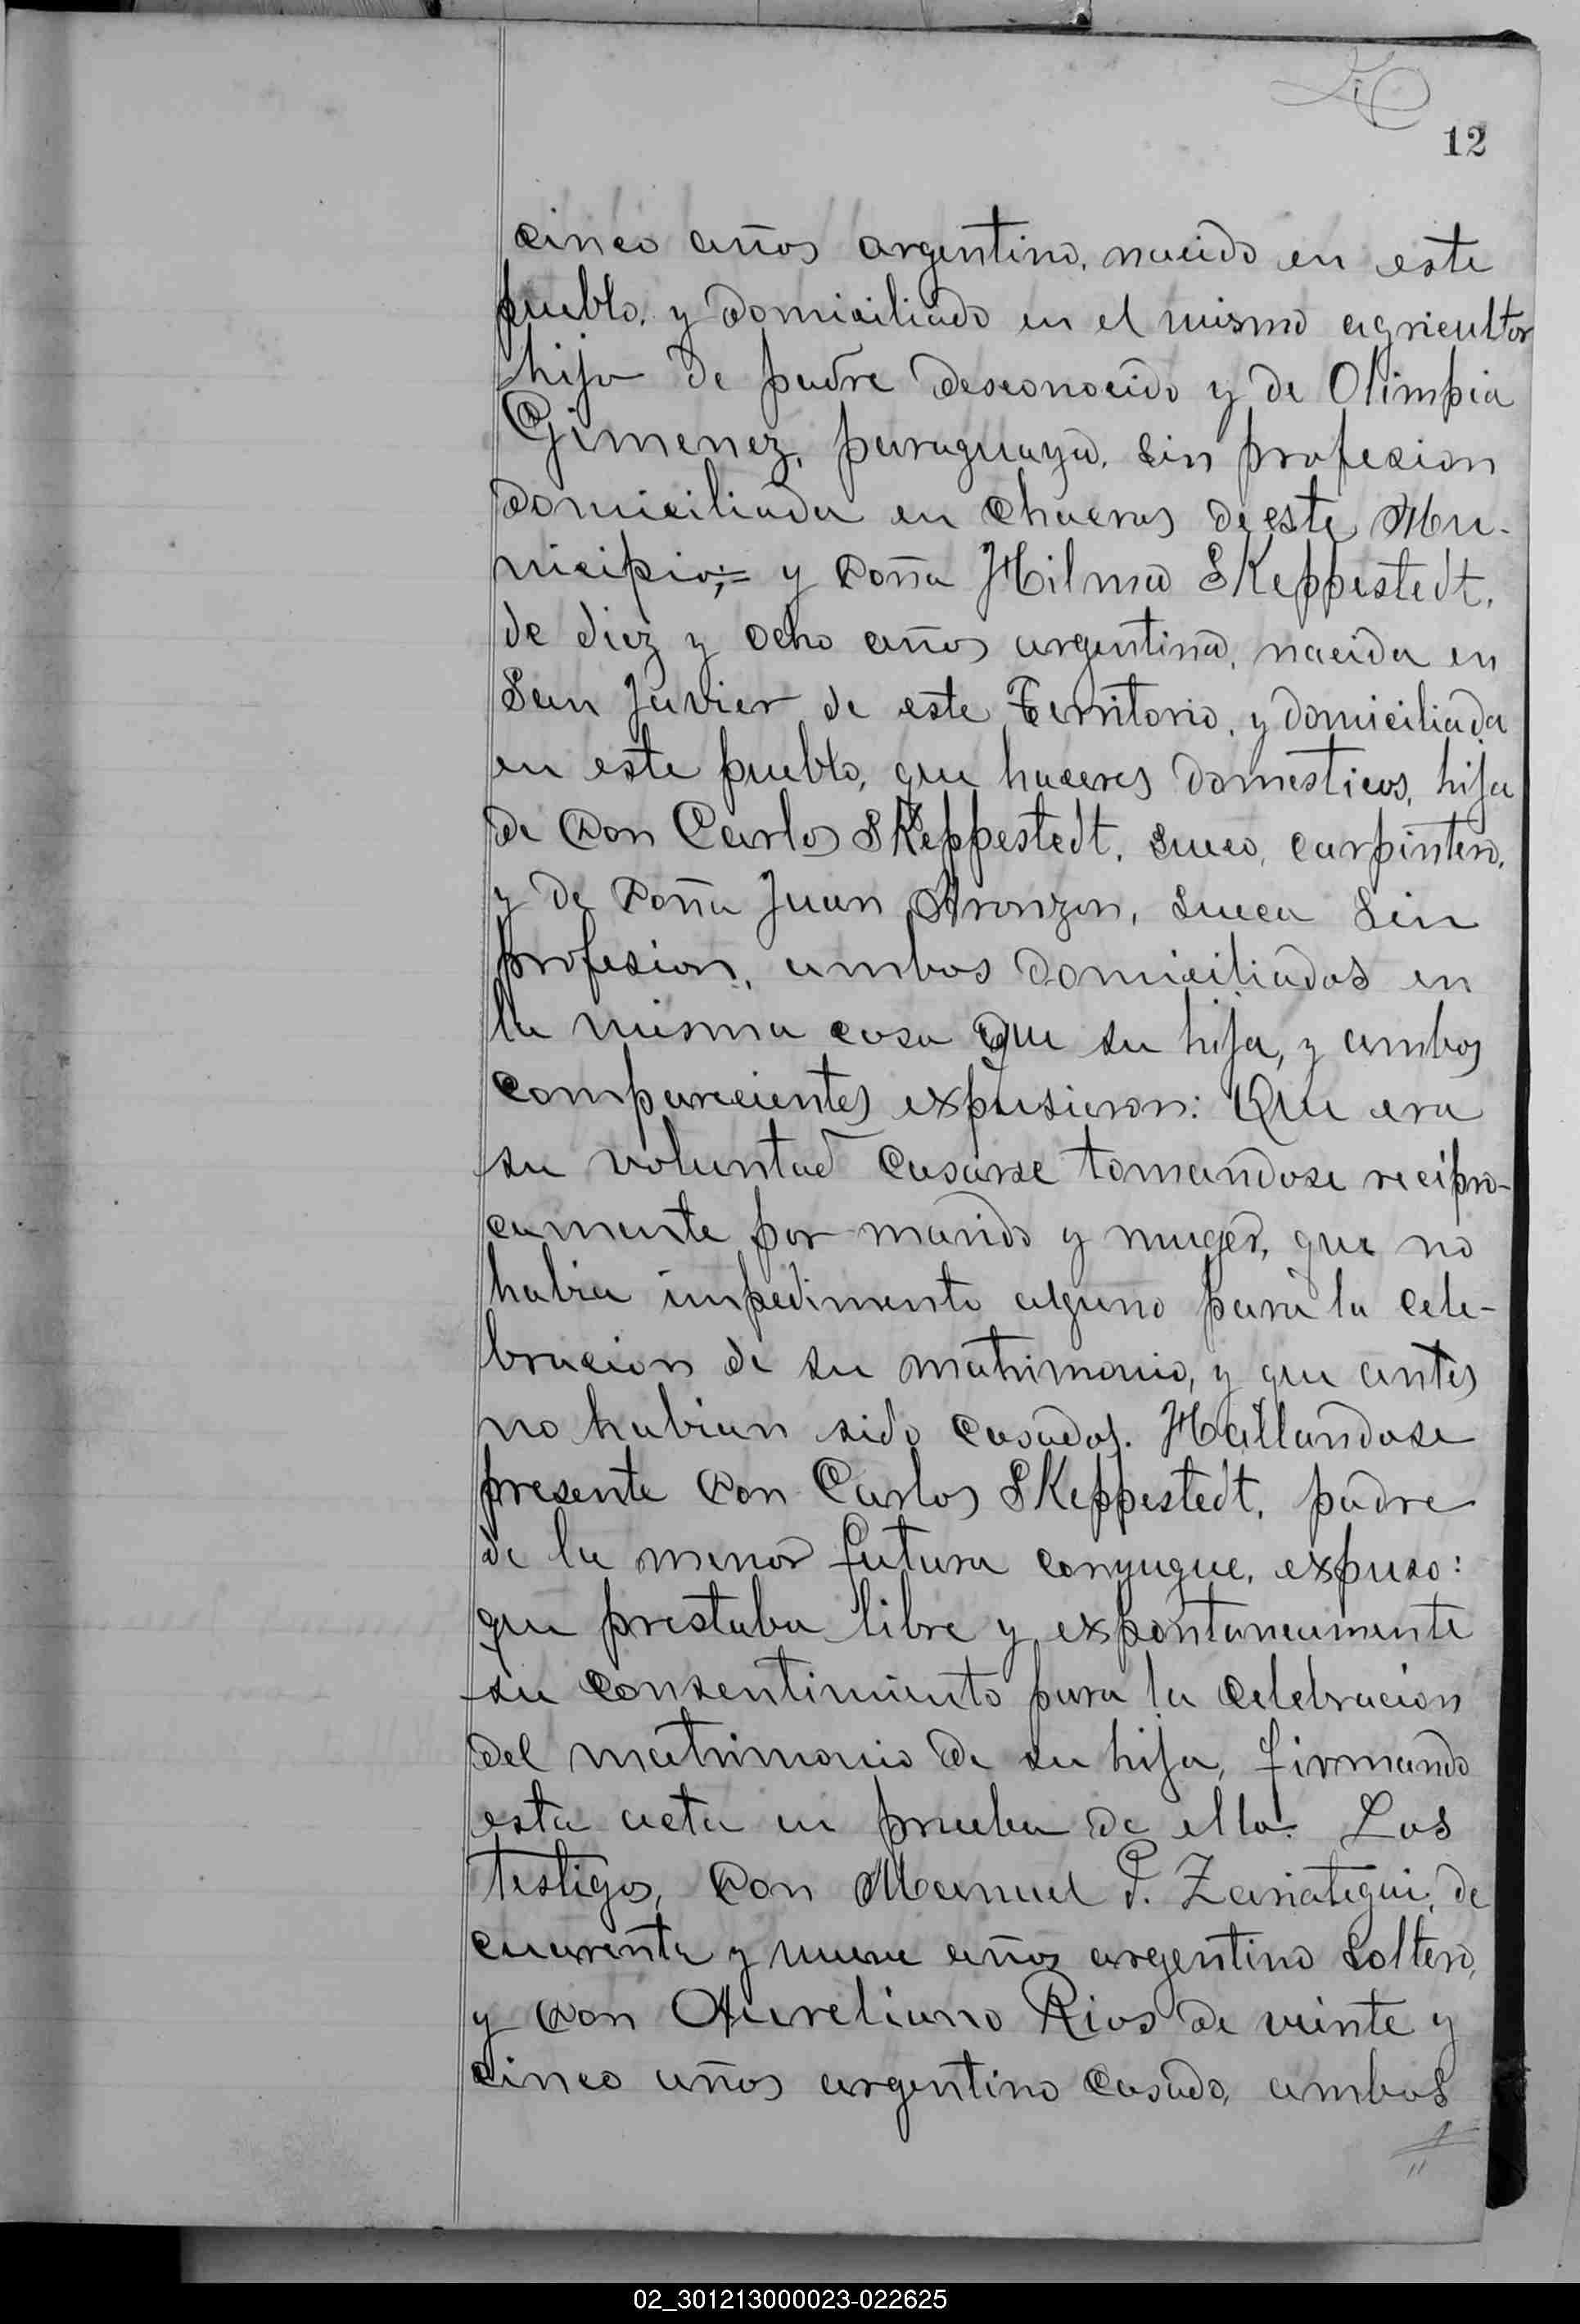 12
cinco años argentino, nacido en este
pueblo, y domiciliado en el mismo agricultor
hijo de padre desconocido y de Olimpia
Gimenez, paraguaya, sin profesion
domiciliada en chacras de este Mu-
nicipio;= y Doña Hilma SKeppestedt,
de diez y ocho años argentina, nacida en
San Javier de este Territorio, y domiciliada
en este pueblo, que haceres domesticos, hija
de Don Carlos SKeppestedt, sueco, carpintero,
y de Doña Juan Aronzon, sueca sin
profesion, ambos domiciliados en
la misma casa que su hija, y ambos
comparecientes expusieron: Que era
su voluntad casarse tomandose recipro-
camente por marido y muger, que no
habia impedimento alguno para la cele-
bracion de su matrimonio, y que antes
no habian sido casados. Hallandose
presente Don Carlos SKeppestedt, padre
de la menor futura conyugue, expuso:
que prestaba libre y expontaneamente
su consentimiento para la celebracion
del matrimonio de su hija, firmando
esta acta en prueba de ello. Los
testigos, Don Manuel P. Zariategui, de
cuarenta y nueve años argentino soltero,
y Don Aureliano Rios de veinte y
cinco años argentino casado, ambos
02_301213000023-022625